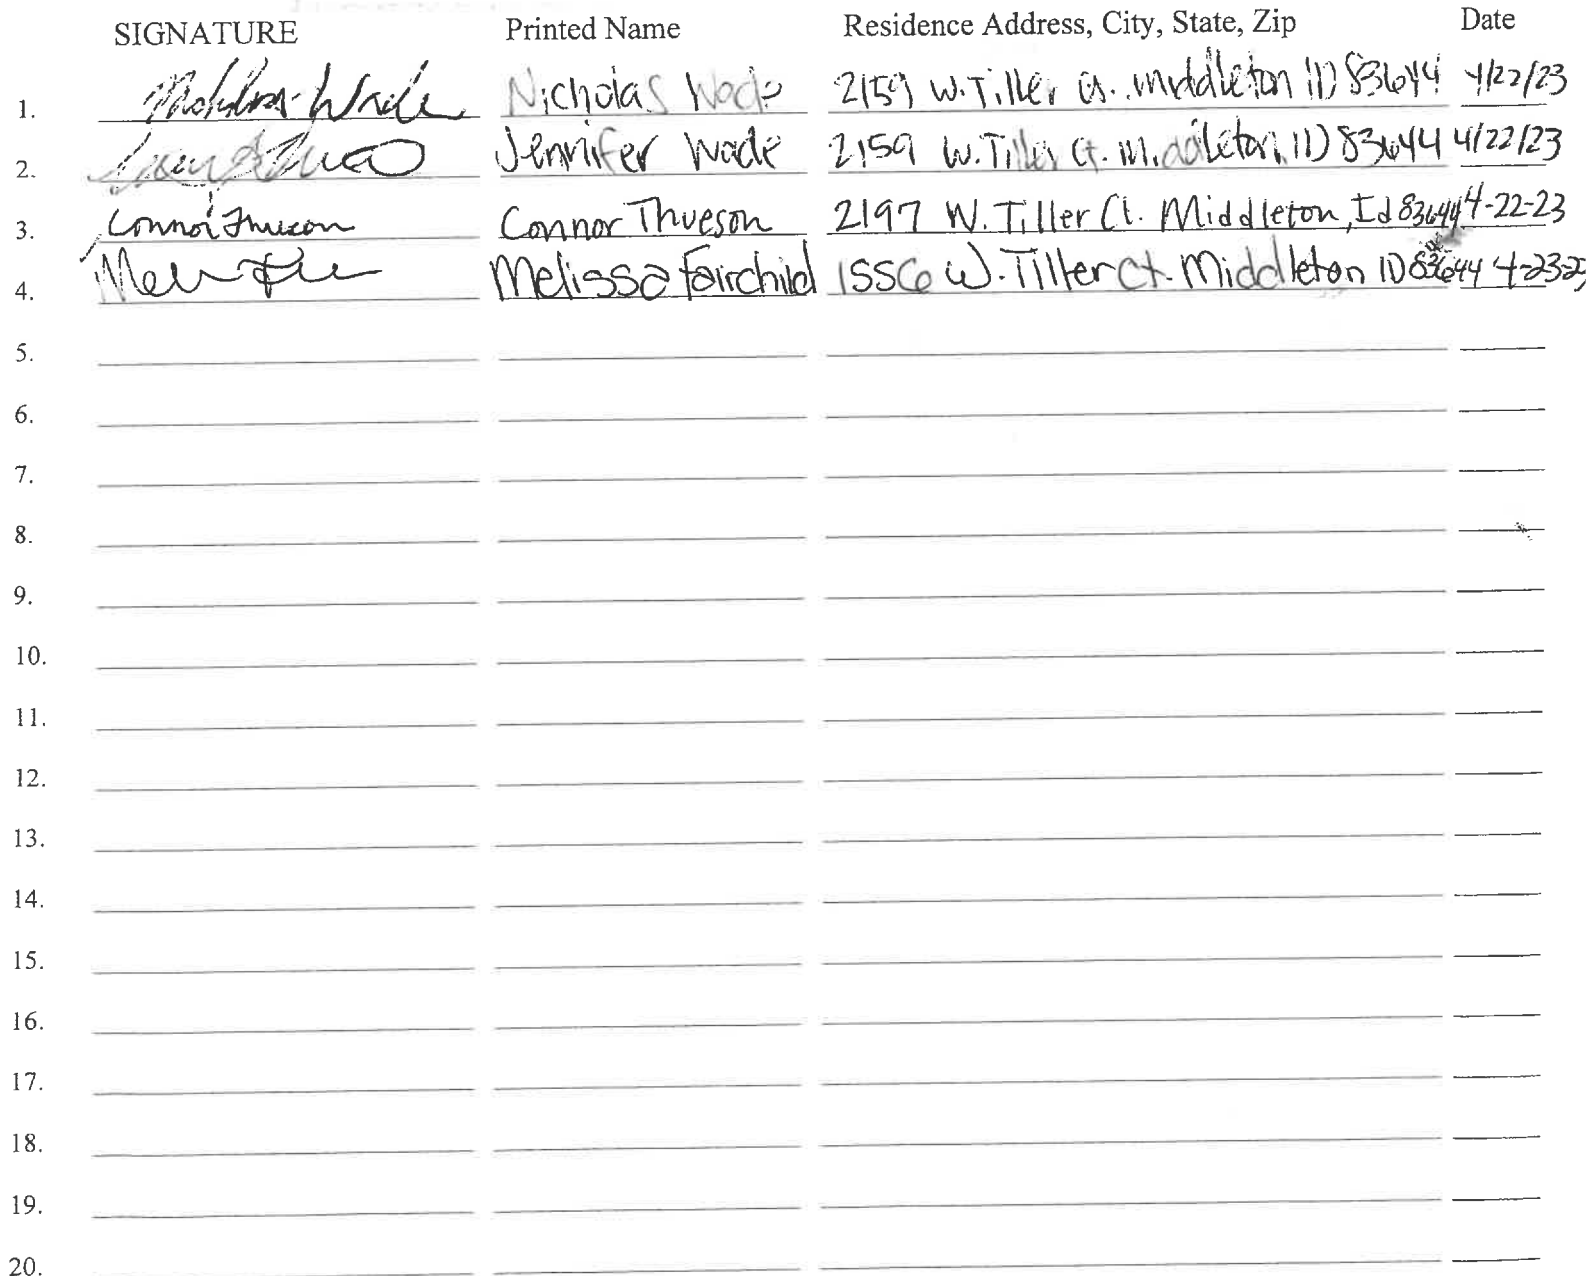 SIGNATURE Printed Name Residence Address, City, State, Zip Date
1. Nicholas Wade Nicholas Wade 2159 W. Tiller Ct. Middleton ID 83644 4/22/23
2. Jennifer Wade 2159 W. Tiller Ct. Middleton, ID 83644 4/22/23
3. Connor Thueson Connor Thueson 2197 W. Tiller Ct. Middleton, Id 83644 4-22-23
4. Melissa Fairchild W. Tiller Ct. Middleton ID 83644
5.
6.
7.
8.
9.
10.
11.
12.
13.
14.
15.
16.
17.
18.
19.
20.